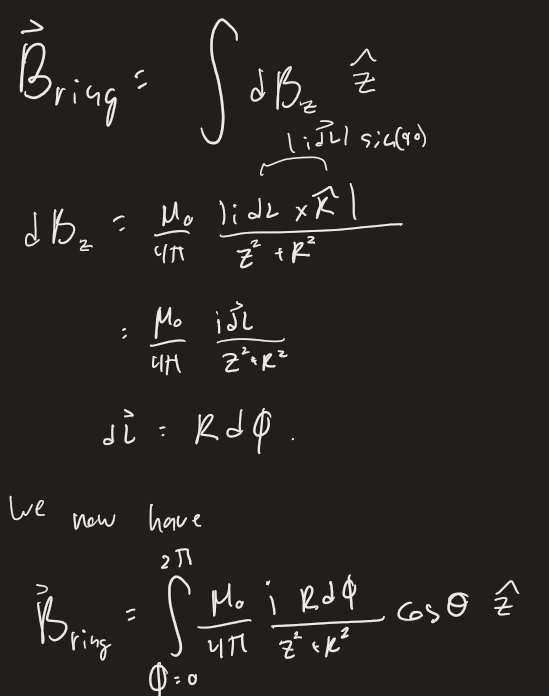 \vec{B}_{ring} = \int dB_z \hat{z}
|i\vec{dL}| sin(90)
dB_z = \frac{μ_0}{4π} \frac{|i dL × \hat{r}|}{z^2 + R^2}
= \frac{μ_0}{4π} \frac{i\vec{dL}}{z^2 + R^2}
d\vec{L} = R dϕ.
We now have
\vec{B}_{ring} = \int_{ϕ=0}^{2π} \frac{μ_0}{4π} \frac{i R dϕ}{z^2 + R^2} cos θ \hat{z}